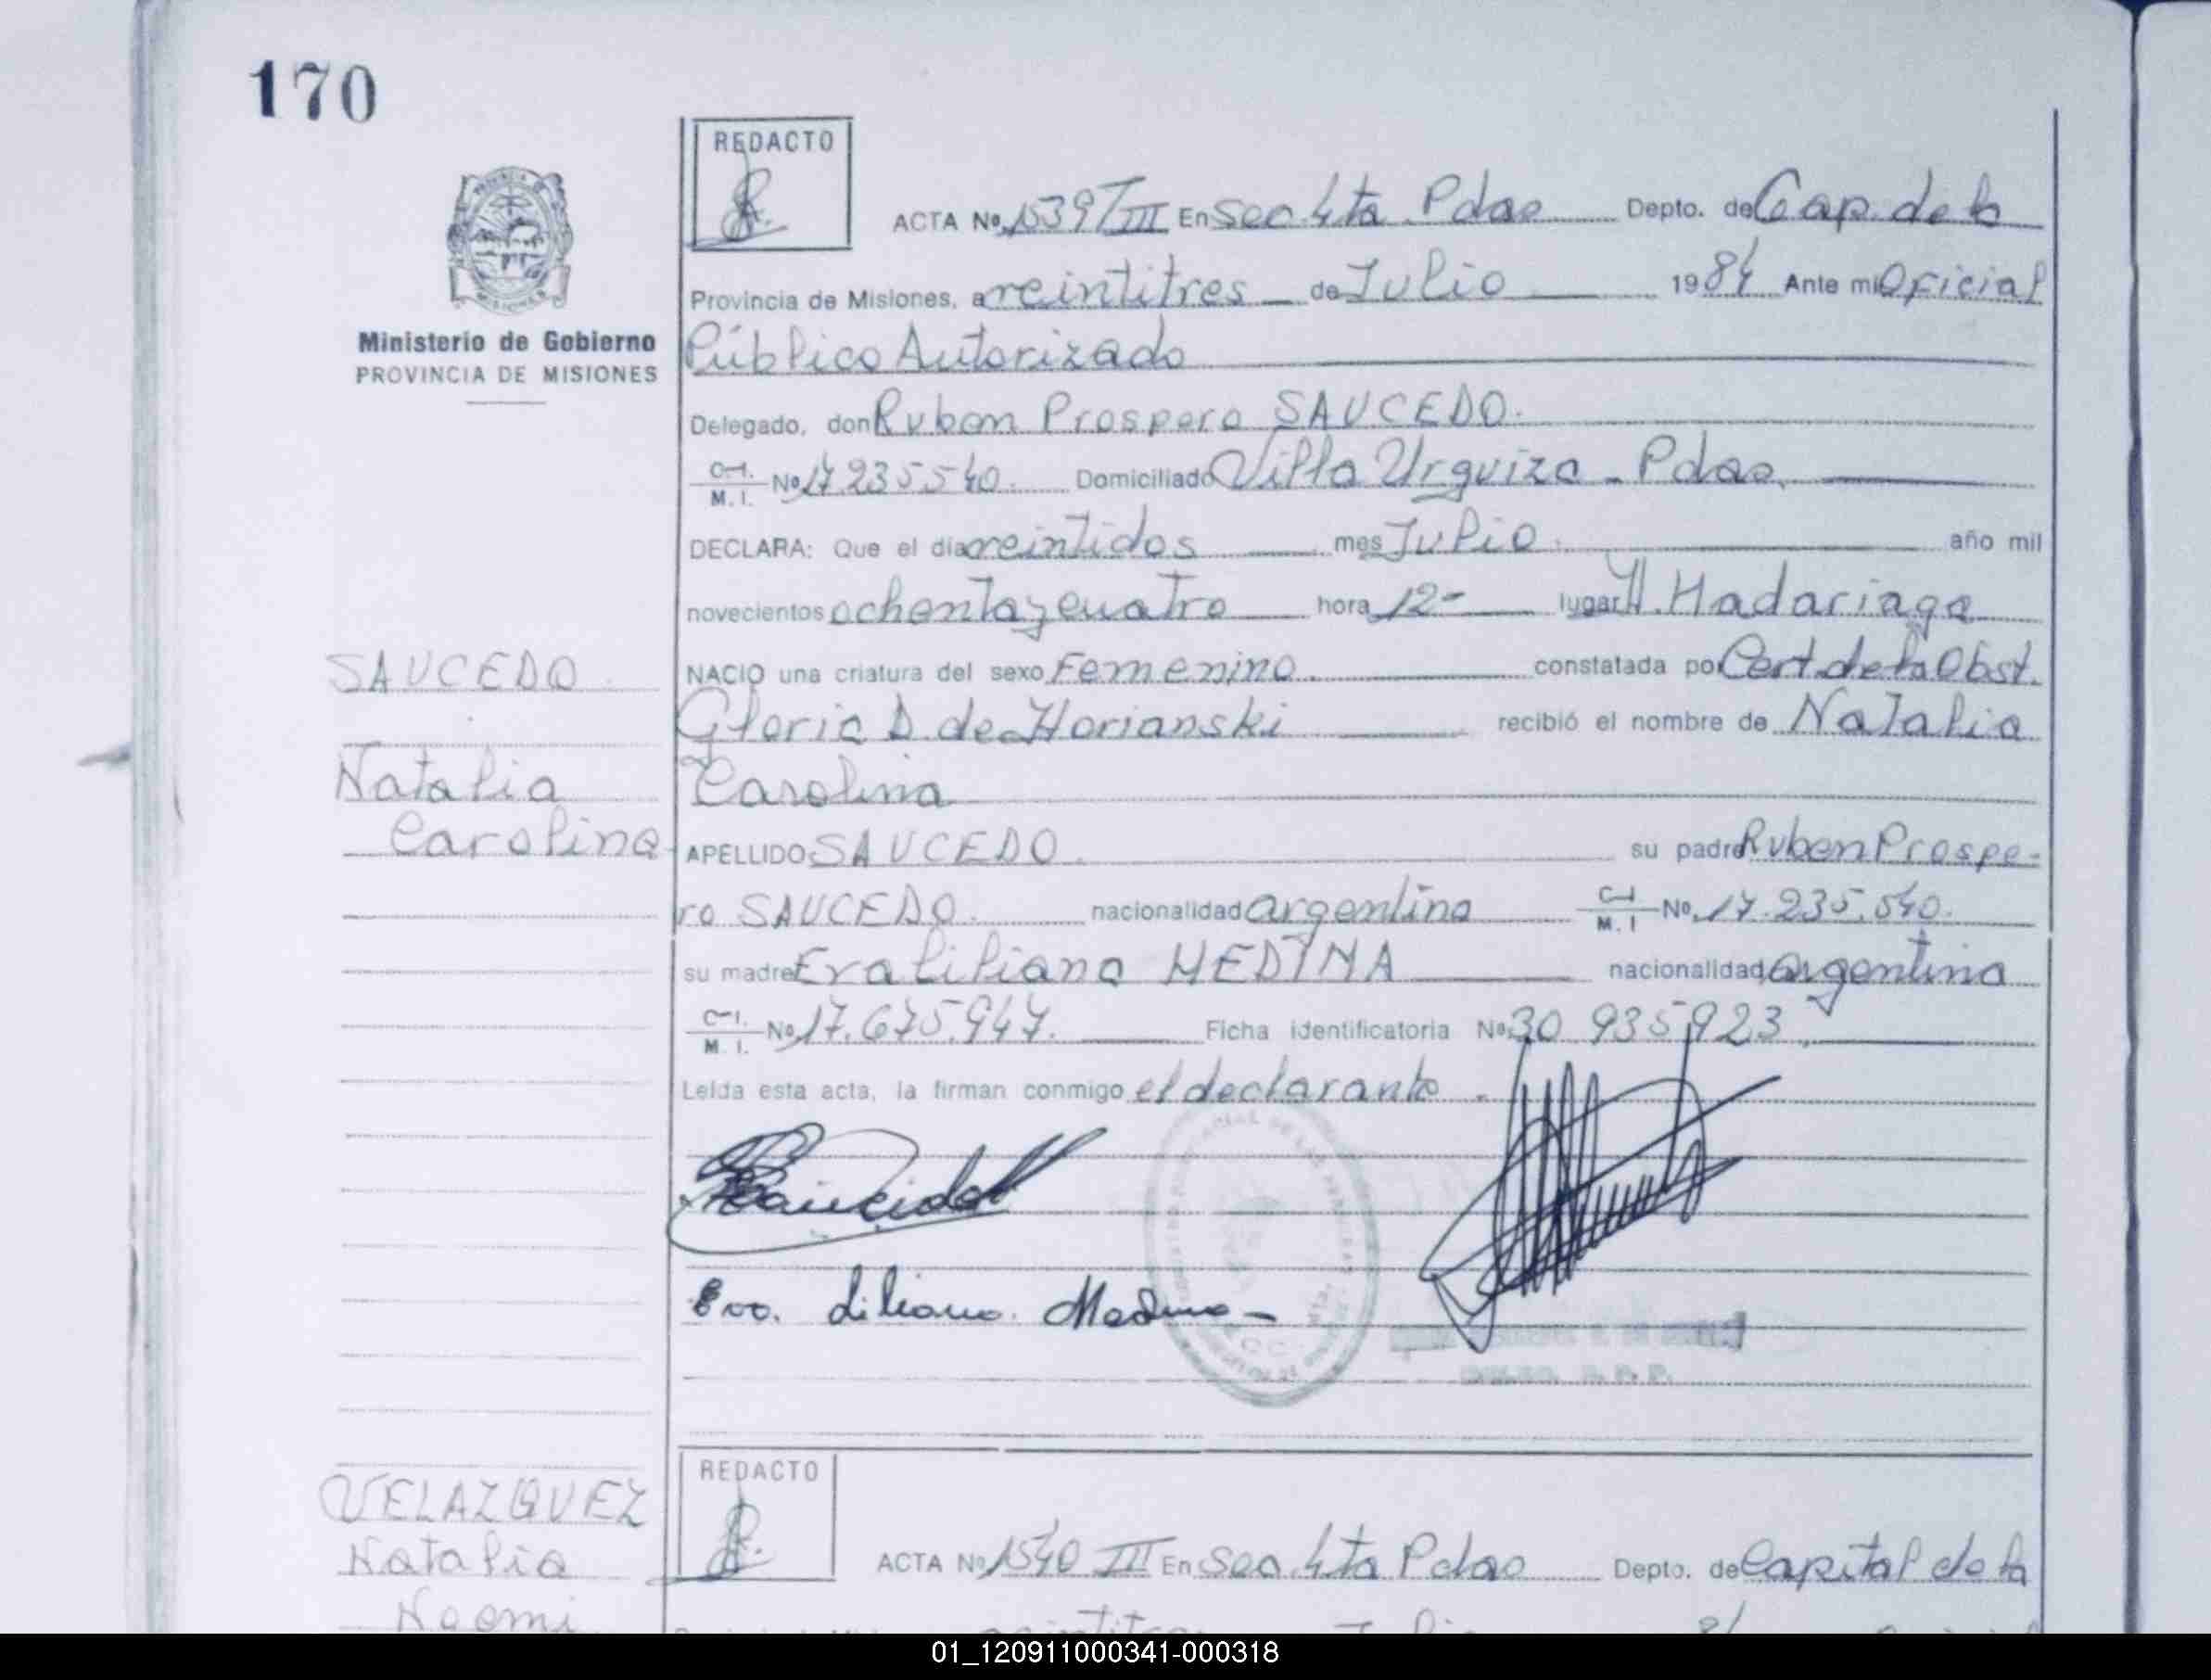 170
REDACTO
ACTA Nº 1539/III En Sec. 4ta Pdas Depto. de Cap. de la
Provincia de Misiones, a veintitres de Julio 1984 Ante mi Oficial
Público Autorizado
Ministerio de Gobierno
PROVINCIA DE MISIONES
Delegado, don Ruben Prospero SAUCEDO.
C.I. M. I. Nº 17.235.540. Domiciliado Villa Urquiza - Pdas.
DECLARA: Que el dia veintidos mes Julio. año mil
novecientos ochenta y cuatro hora 12- lugar H. Madariaga
SAUCEDO
NACIO una criatura del sexo Femenino. constatada por Cert. de la Obst.
Gloria D. de Horianski recibió el nombre de Natalia
Natalia
Carolina
Carolina
APELLIDO SAUCEDO su padre Ruben Prospe-
ro SAUCEDO. nacionalidad argentina C-I M. I Nº 17.235.540.
su madre Eva Liliana MEDINA nacionalidad argentina
C-I. M. I. Nº 17.675.947. Ficha identificatoria Nº 30 935 923
Leida esta acta, la firman conmigo el declarante
Eva. Liliana. Medina -
VELAZQUEZ
Natalia
Noemi
REDACTO
ACTA Nº 1540 III En Sec. 4ta Pdas Depto. de Capital de la
01_120911000341-000318